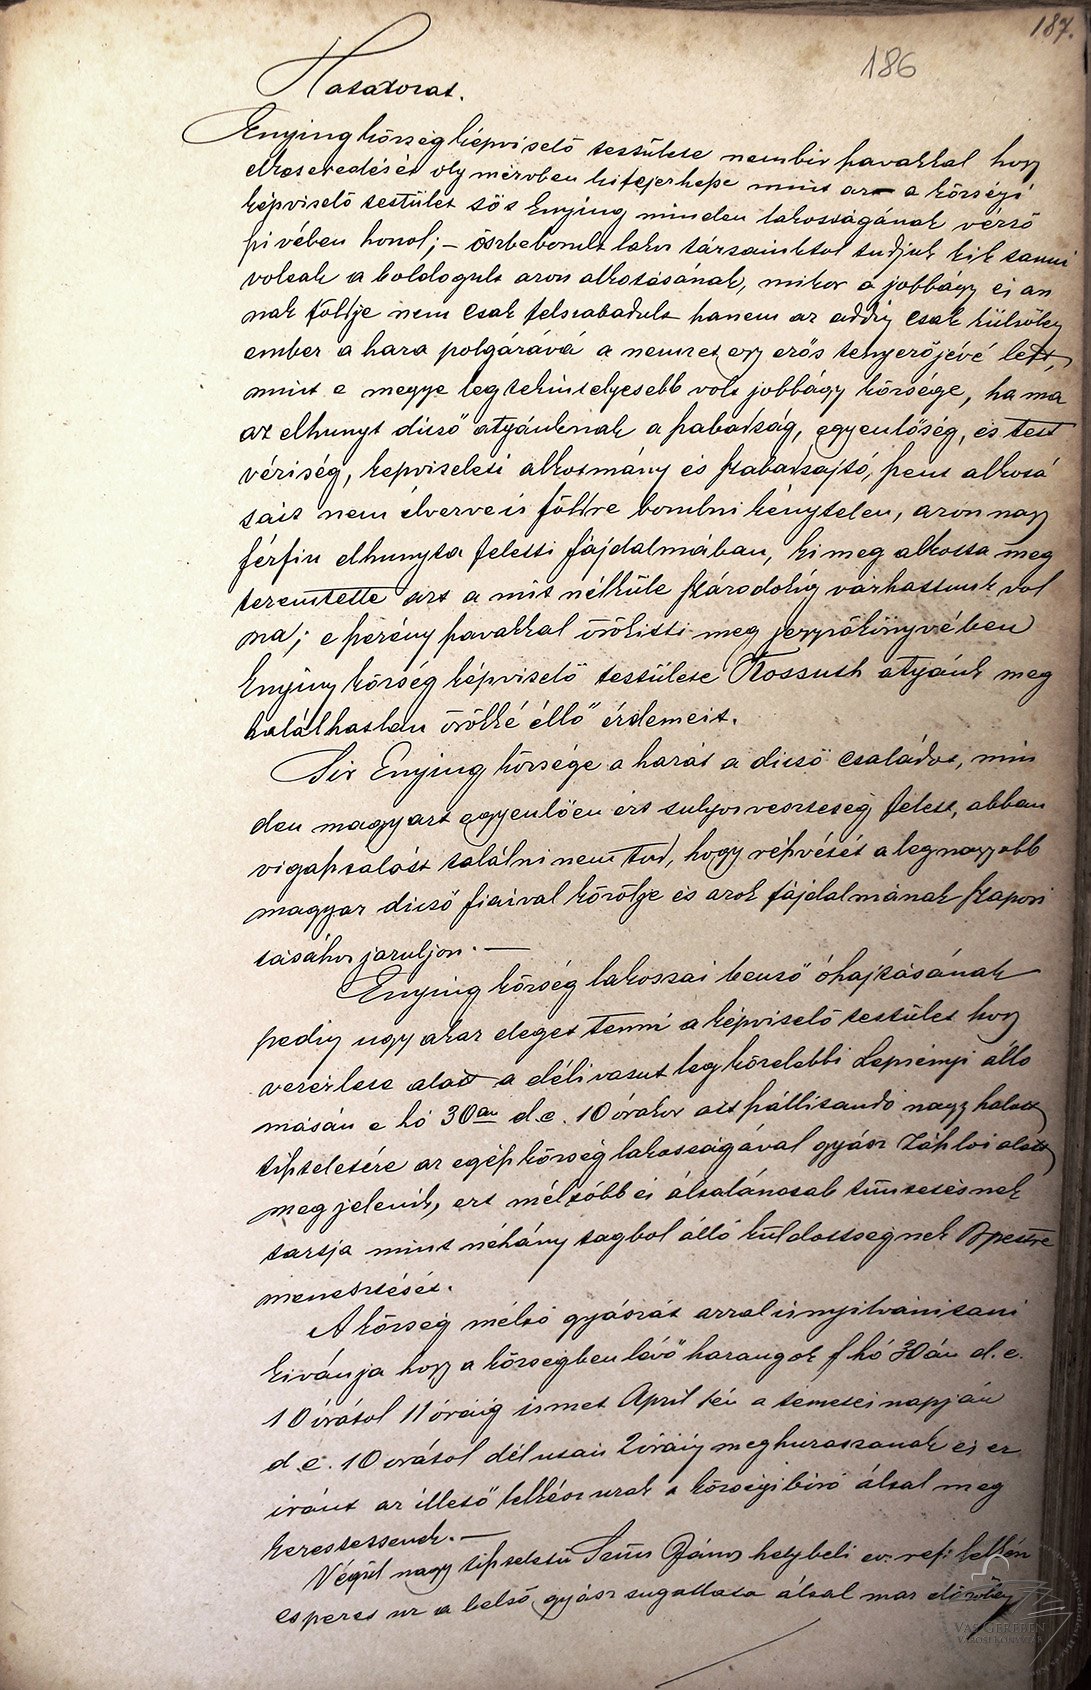 187.
186
Határozat.
Enying község képviselő testülete nem bir szavakkal hogy
elkeseredését oly mérvben kifejezhesse mint az a községi
képviselő testület sőt Enying minden lakosságának vérző
szivében honol; – őszbeborult lakos társainktol tudjuk kik tanui
voltak a boldogult azon alkotásának, mikor a jobbágy és an
nak földje nem csak felszabadult hanem az addig csak
ember a haza polgárává a nemzet egy erős tenyezőjévé lett,
mint e megye legtekintelyesebb volt jobbágy községe, ha ma
az elhunyt dicső atyánknak a szabadság, egyenlőség, és test
vériség, kepviseleti alkotmány és szabadsajtó, szent alkotá
sait nem élvezve is földre borulni kénytelen, azon nagy
férfiu elhunyta feletti fájdalmában, ki meg alkotta meg
teremtette azt a mit nélküle századokig várhattunk vol
na; e szerény szavakkal örökiti meg jegyzőkönyvében
Enying község képviselő testülete Kossuth atyánk meg
halálhatlan örökké élló érdemeit.
Sir Enying községe a hazát a dicső családot, min
den magyart egyenlően ért sulyos veszteség felett, abban
vigasztalást találni nem tud, hogy részvétét a legnagyobb
magyar dicső fiaival közölje és azok fájdalmának
tásához jaruljon. —
Enying község lakossai benső óhajtásának
pedig ugy akar eleget tenni a képviselő testület hogy
vezérlete alatt a délivasut legközelebbi Lepsényi állo
másán e hó 30án d.e. 10 órakor ott szállitandó nagy halott
tiszteletére az egész község lakosságával gyász zászloi alatt
megjelenik, ezt méltóbb és általánosab tüntetésnek
tartja mint néhány tagbol álló küldöttsegnek Bpestre
menesztését.
A község méltó gyászát azzal is nyilvánitani
kivánja hogy a községben lévő harangok f hó 30án d.e.
10 órátol 11 óráig ismet April 1én a temetés napján
d.e. 10 orátol délutan 2 óráig meghuzassanak és ez
iránt az illető lelkész urak a községi biró által meg
kerestessenek. —
Végül nagy tiszteletü Szüts János helybeli ev. ref. lelkész
esperes ur a belső gyász sugallata által mar
VAS GEREBEN
VÁROSI KÖNYVTÁR